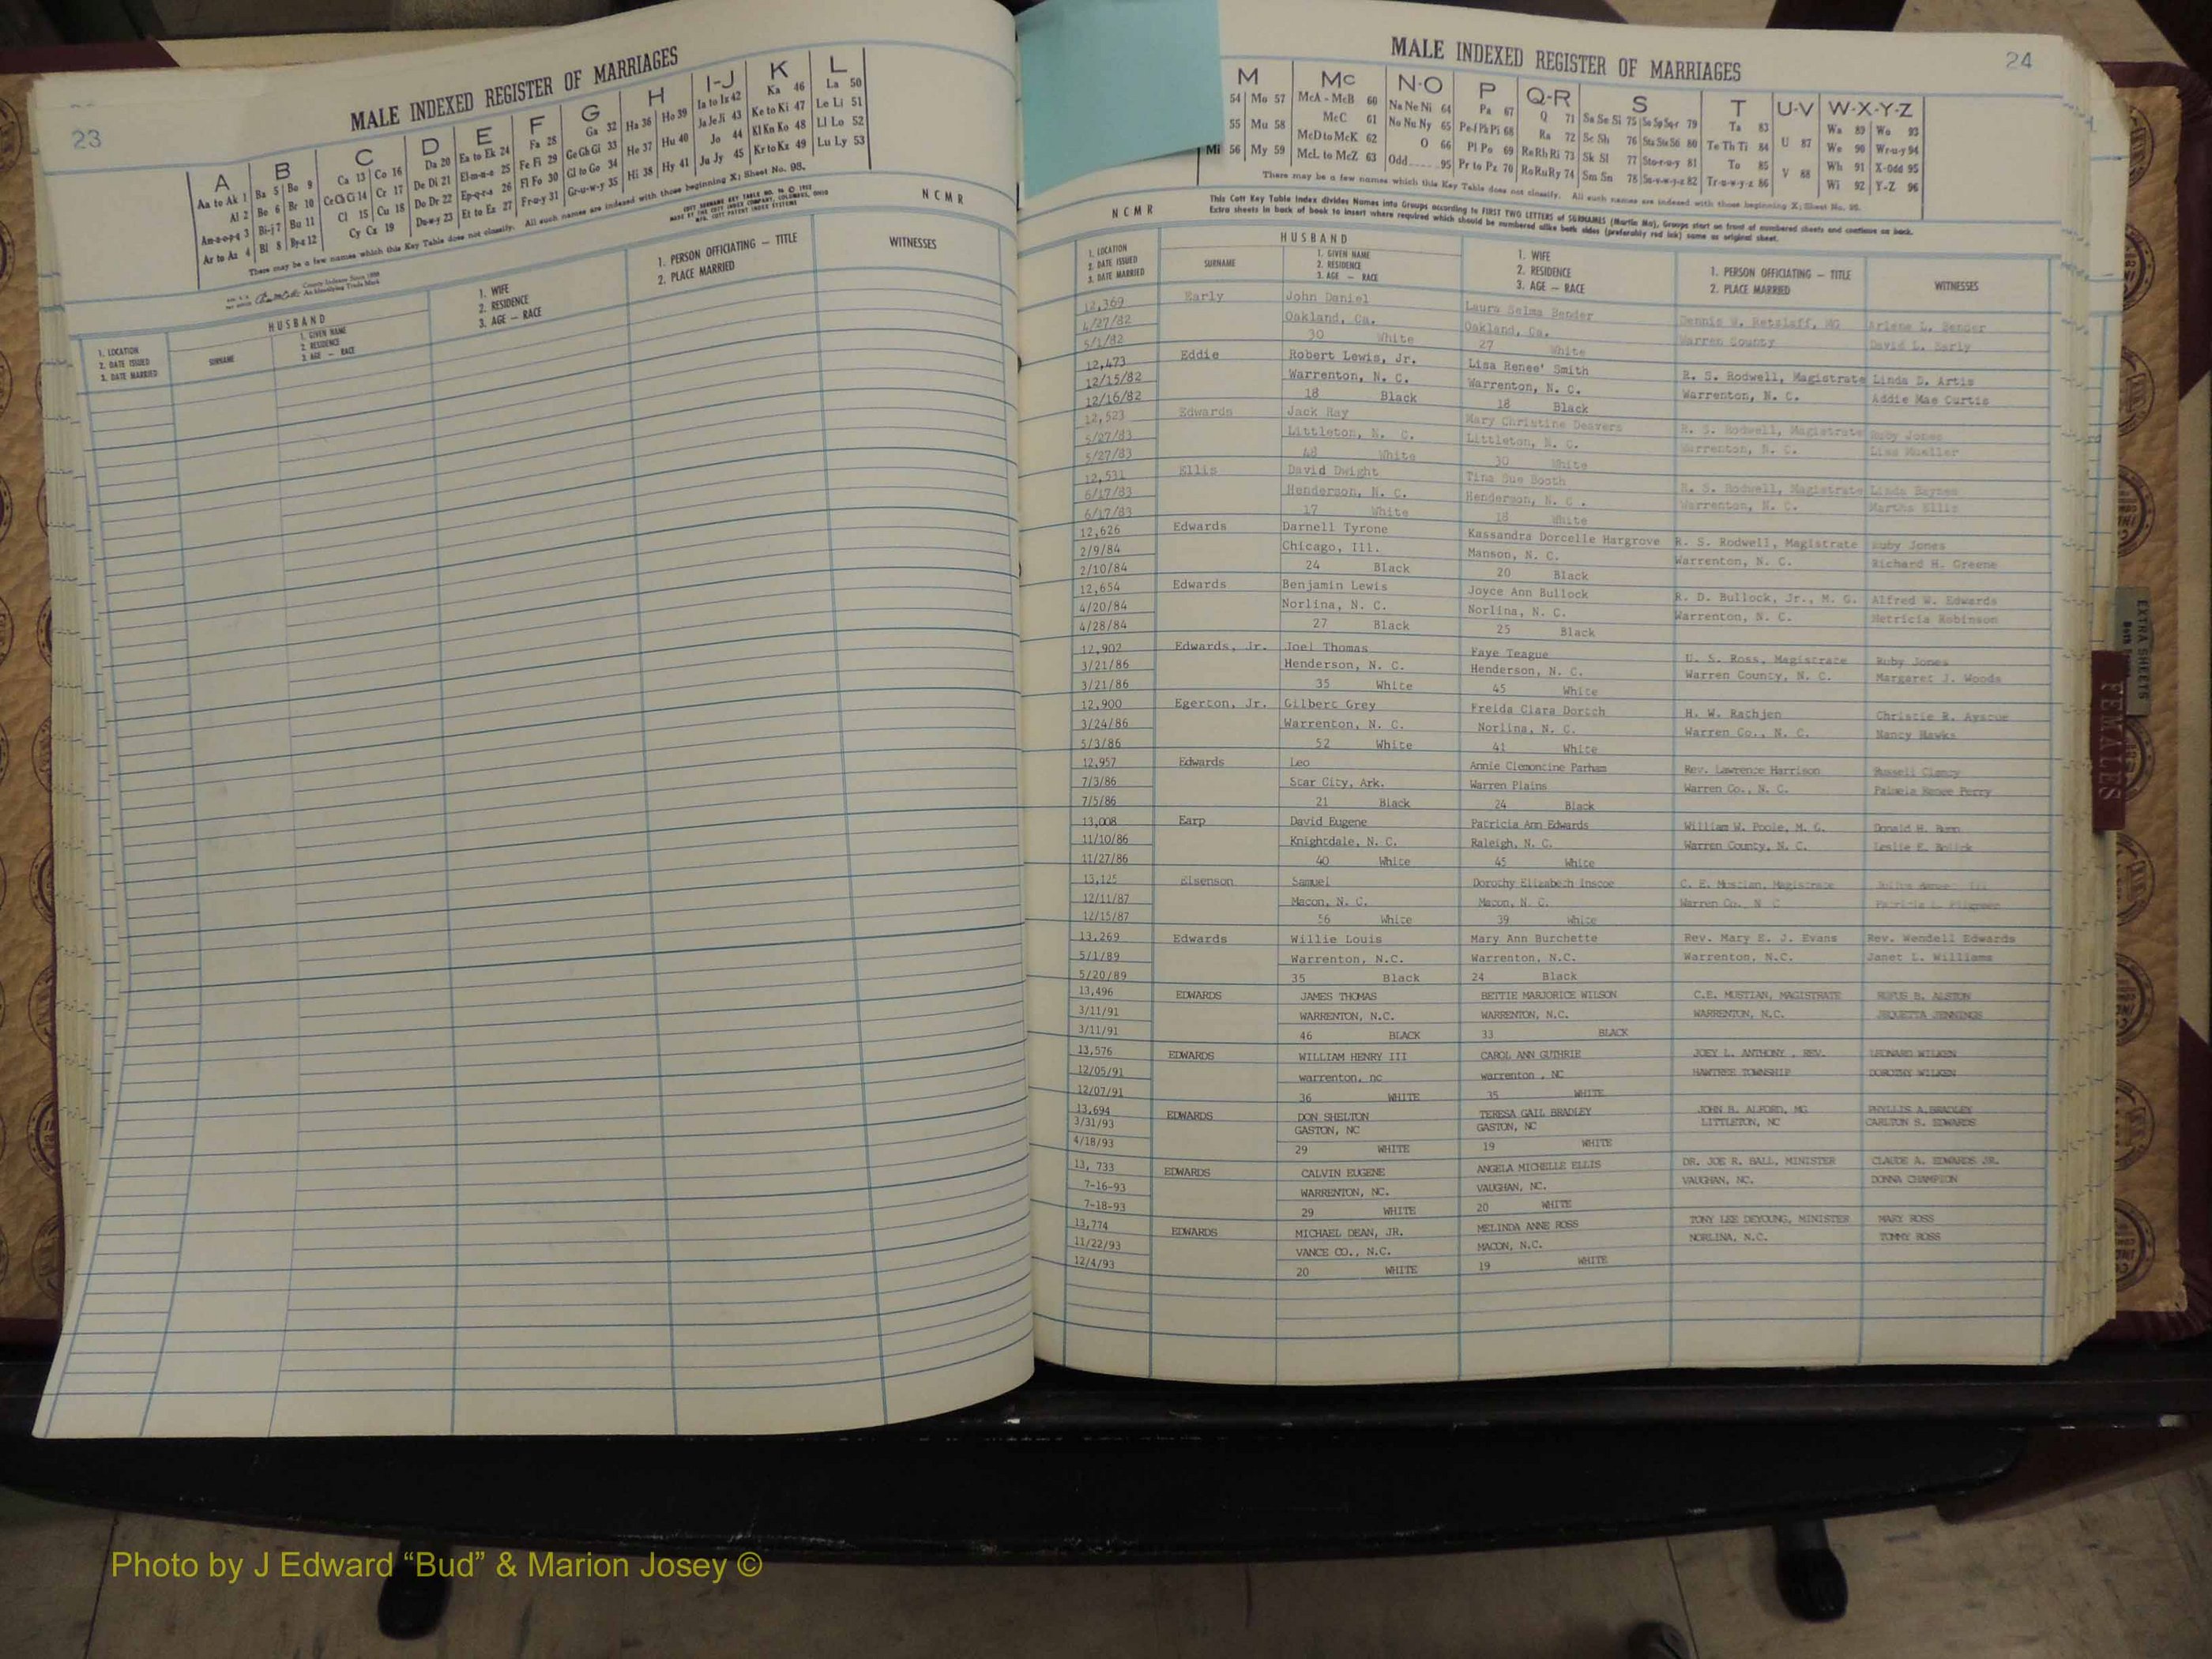 23
MALE INDEXED REGISTER OF MARRIAGES
A B C D E F G H I-J K L
Aa to Ak 1 Ba 5 Bo 9 Ca 13 Co 16 Da 20 Ea to Ek 24 Fa 28 Ga 32 Ha 36 Ho 39 Ia to Iz 42 Ka 46 La 50
Al 2 Be 6 Br 10 Ce Ch Ci 14 Cr 17 De Di 21 El-m-n-o 25 Fe Fi 29 Ge Gh Gi 33 He 37 Hu 40 Ja Je Ji 43 Ke to Ki 47 Le Li 51
Am-n-o-p-q 3 Bi-j 7 Bu 11 Cl 15 Cu 18 Do Dr 22 Ep-q-r-s 26 Fl Fo 30 Gl to Go 34 Hi 38 Hy 41 Jo 44 Kl Kn Ko 48 Ll Lo 52
Ar to Az 4 Bl 8 By-z 12 Cy Cz 19 Du-w-y 23 Et to Ez 27 Fr-u-y 31 Gr-u-w-y 35 Ju Jy 45 Kr to Kz 49 Lu Ly 53
There may be a few names which this Key Table does not classify. All such names are indexed with those beginning X; Sheet No. 95.
County Indexes Since 1888
An Identifying Trade Mark
COTT SURNAME KEY TABLE NO. 96 © 1952
MADE BY THE COTT INDEX COMPANY, COLUMBUS, OHIO
MFG. COTT PATENT INDEX SYSTEMS
N C M R
1. LOCATION
2. DATE ISSUED
3. DATE MARRIED
HUSBAND
SURNAME
1. GIVEN NAME
2. RESIDENCE
3. AGE — RACE
1. WIFE
2. RESIDENCE
3. AGE — RACE
1. PERSON OFFICIATING — TITLE
2. PLACE MARRIED
WITNESSES
MALE INDEXED REGISTER OF MARRIAGES
24
M Mc N-O P Q-R S T U-V W-X-Y-Z
54 Mo 57 McA - McB 60 Na Ne Ni 64 Pa 67 Q 71 Sa Se Si 75 So Sp Sq-r 79 Ta 83 Wa 89 Wo 93
55 Mu 58 McC 61 No Nu Ny 65 Pe-f Ph Pi 68 Ra 72 Sc Sh 76 Sta Ste Sti 80 Te Th Ti 84 U 87 We 90 Wr-u-y 94
McD to McK 62 O 66 Pl Po 69 Re Rh Ri 73 Sk Sl 77 Sto-r-u-y 81 To 85 Wh 91 X-Odd 95
Mi 56 My 59 McL to McZ 63 Odd 95 Pr to Pz 70 Ro Ru Ry 74 Sm Sn 78 Su-v-w-y-z 82 Tr-u-w-y-z 86 V 88 Wi 92 Y-Z 96
There may be a few names which this Key Table does not classify. All such names are indexed with those beginning X; Sheet No. 95.
This Cott Key Table Index divides Names into Groups according to FIRST TWO LETTERS of SURNAMES (Martin Ma), Groups start on front of numbered sheets and continue on back.
Extra sheets in back of book to insert where required which should be numbered alike both sides (preferably red ink) same as original sheet.
N C M R
1. LOCATION
2. DATE ISSUED
3. DATE MARRIED
HUSBAND
SURNAME
1. GIVEN NAME
2. RESIDENCE
3. AGE — RACE
1. WIFE
2. RESIDENCE
3. AGE — RACE
1. PERSON OFFICIATING — TITLE
2. PLACE MARRIED
WITNESSES
12,369 Early John Daniel Laura Selma Bender Dennis W. Retzlaff, MG Arlene L. Bender
4/27/82 Oakland, Ca. Oakland, Ca. Warren County David L. Early
5/1/82 30 White 27 White
12,473 Eddie Robert Lewis, Jr. Lisa Renee' Smith R. S. Rodwell, Magistrate Linda D. Artis
12/15/82 Warrenton, N. C. Warrenton, N. C. Warrenton, N. C. Addie Mae Curtis
12/16/82 18 Black 18 Black
12,523 Edwards Jack Ray Mary Christine Deavers R. S. Rodwell, Magistrate Ruby Jones
5/27/83 Littleton, N. C. Littleton, N. C. Warrenton, N. C. Lisa Mueller
5/27/83 48 White 30 White
12,531 Ellis David Dwight Tina Sue Booth R. S. Rodwell, Magistrate Linda Haynes
6/17/83 Henderson, N. C. Henderson, N. C. Warrenton, N. C. Martha Ellis
6/17/83 17 White 18 White
12,626 Edwards Darnell Tyrone Kassandra Dorcelle Hargrove R. S. Rodwell, Magistrate Ruby Jones
2/9/84 Chicago, Ill. Manson, N. C. Warrenton, N. C. Richard H. Greene
2/10/84 24 Black 20 Black
12,654 Edwards Benjamin Lewis Joyce Ann Bullock R. D. Bullock, Jr., M. G. Alfred W. Edwards
4/20/84 Norlina, N. C. Norlina, N. C. Warrenton, N. C. Metricia Robinson
4/28/84 27 Black 25 Black
12,902 Edwards, Jr. Joel Thomas Faye Teague U. S. Ross, Magistrate Ruby Jones
3/21/86 Henderson, N. C. Henderson, N. C. Warren County, N. C. Margaret J. Woods
3/21/86 35 White 45 White
12,900 Egerton, Jr. Gilbert Grey Freida Clara Dortch H. W. Rachjen Christie R. Ayscue
3/24/86 Warrenton, N. C. Norlina, N. C. Warren Co., N. C. Nancy Hawks
5/3/86 52 White 41 White
12,957 Edwards Leo Annie Clemontine Parham Rev. Lawrence Harrison Russell Clancy
7/3/86 Star City, Ark. Warren Plains Warren Co., N. C. Pamela Renee Perry
7/5/86 21 Black 24 Black
13,008 Earp David Eugene Patricia Ann Edwards William W. Poole, M. G. Donald H. Bunn
11/10/86 Knightdale, N. C. Raleigh, N. C. Warren County, N. C. Leslie E.
11/27/86 40 White 45 White
13,125 Elsenson Samuel Dorothy Elizabeth Inscoe C. E. Mustian, Magistrate
12/11/87 Macon, N. C. Macon, N. C. Warren Co., N C Patricia L.
12/15/87 56 White 39 White
13,269 Edwards Willie Louis Mary Ann Burchette Rev. Mary E. J. Evans Rev. Wendell Edwards
5/1/89 Warrenton, N.C. Warrenton, N.C. Warrenton, N.C. Janet L. Williams
5/20/89 35 Black 24 Black
13,496 EDWARDS JAMES THOMAS BETTIE MARJORICE WILSON C.E. MUSTIAN, MAGISTRATE RUFUS B. ALSTON
3/11/91 WARRENTON, N.C. WARRENTON, N.C. WARRENTON, N.C. JEQUETTA JENNINGS
3/11/91 46 BLACK 33 BLACK
13,576 EDWARDS WILLIAM HENRY III CAROL ANN GUTHRIE JOEY L. ANTHONY , REV. LEONARD WILKEN
12/05/91 warrenton, nc warrenton , NC HAWTREE TOWNSHIP DOROTHY WILKEN
12/07/91 36 WHITE 35 WHITE
13,694 EDWARDS DON SHELTON TERESA GAIL BRADLEY JOHN B. ALFORD, MG PHYLLIS A.BRADLEY
3/31/93 GASTON, NC GASTON, NC LITTLETON, NC CARLTON S. EDWARDS
4/18/93 29 WHITE 19 WHITE
13, 733 EDWARDS CALVIN EUGENE ANGELA MICHELLE ELLIS DR. JOE R. BALL, MINISTER CLAUDE A. EDWARDS JR.
7-16-93 WARRENTON, NC. VAUGHAN, NC. VAUGHAN, NC. DONNA CHAMPION
7-18-93 29 WHITE 20 WHITE
13,774 EDWARDS MICHAEL DEAN, JR. MELINDA ANNE ROSS TONY LEE DEYOUNG, MINISTER MARY ROSS
11/22/93 VANCE CO., N.C. MACON, N.C. NORLINA, N.C. TOMMY ROSS
12/4/93 20 WHITE 19 WHITE
EXTRA SHEETS
FEMALES
Photo by J Edward “Bud” & Marion Josey ©